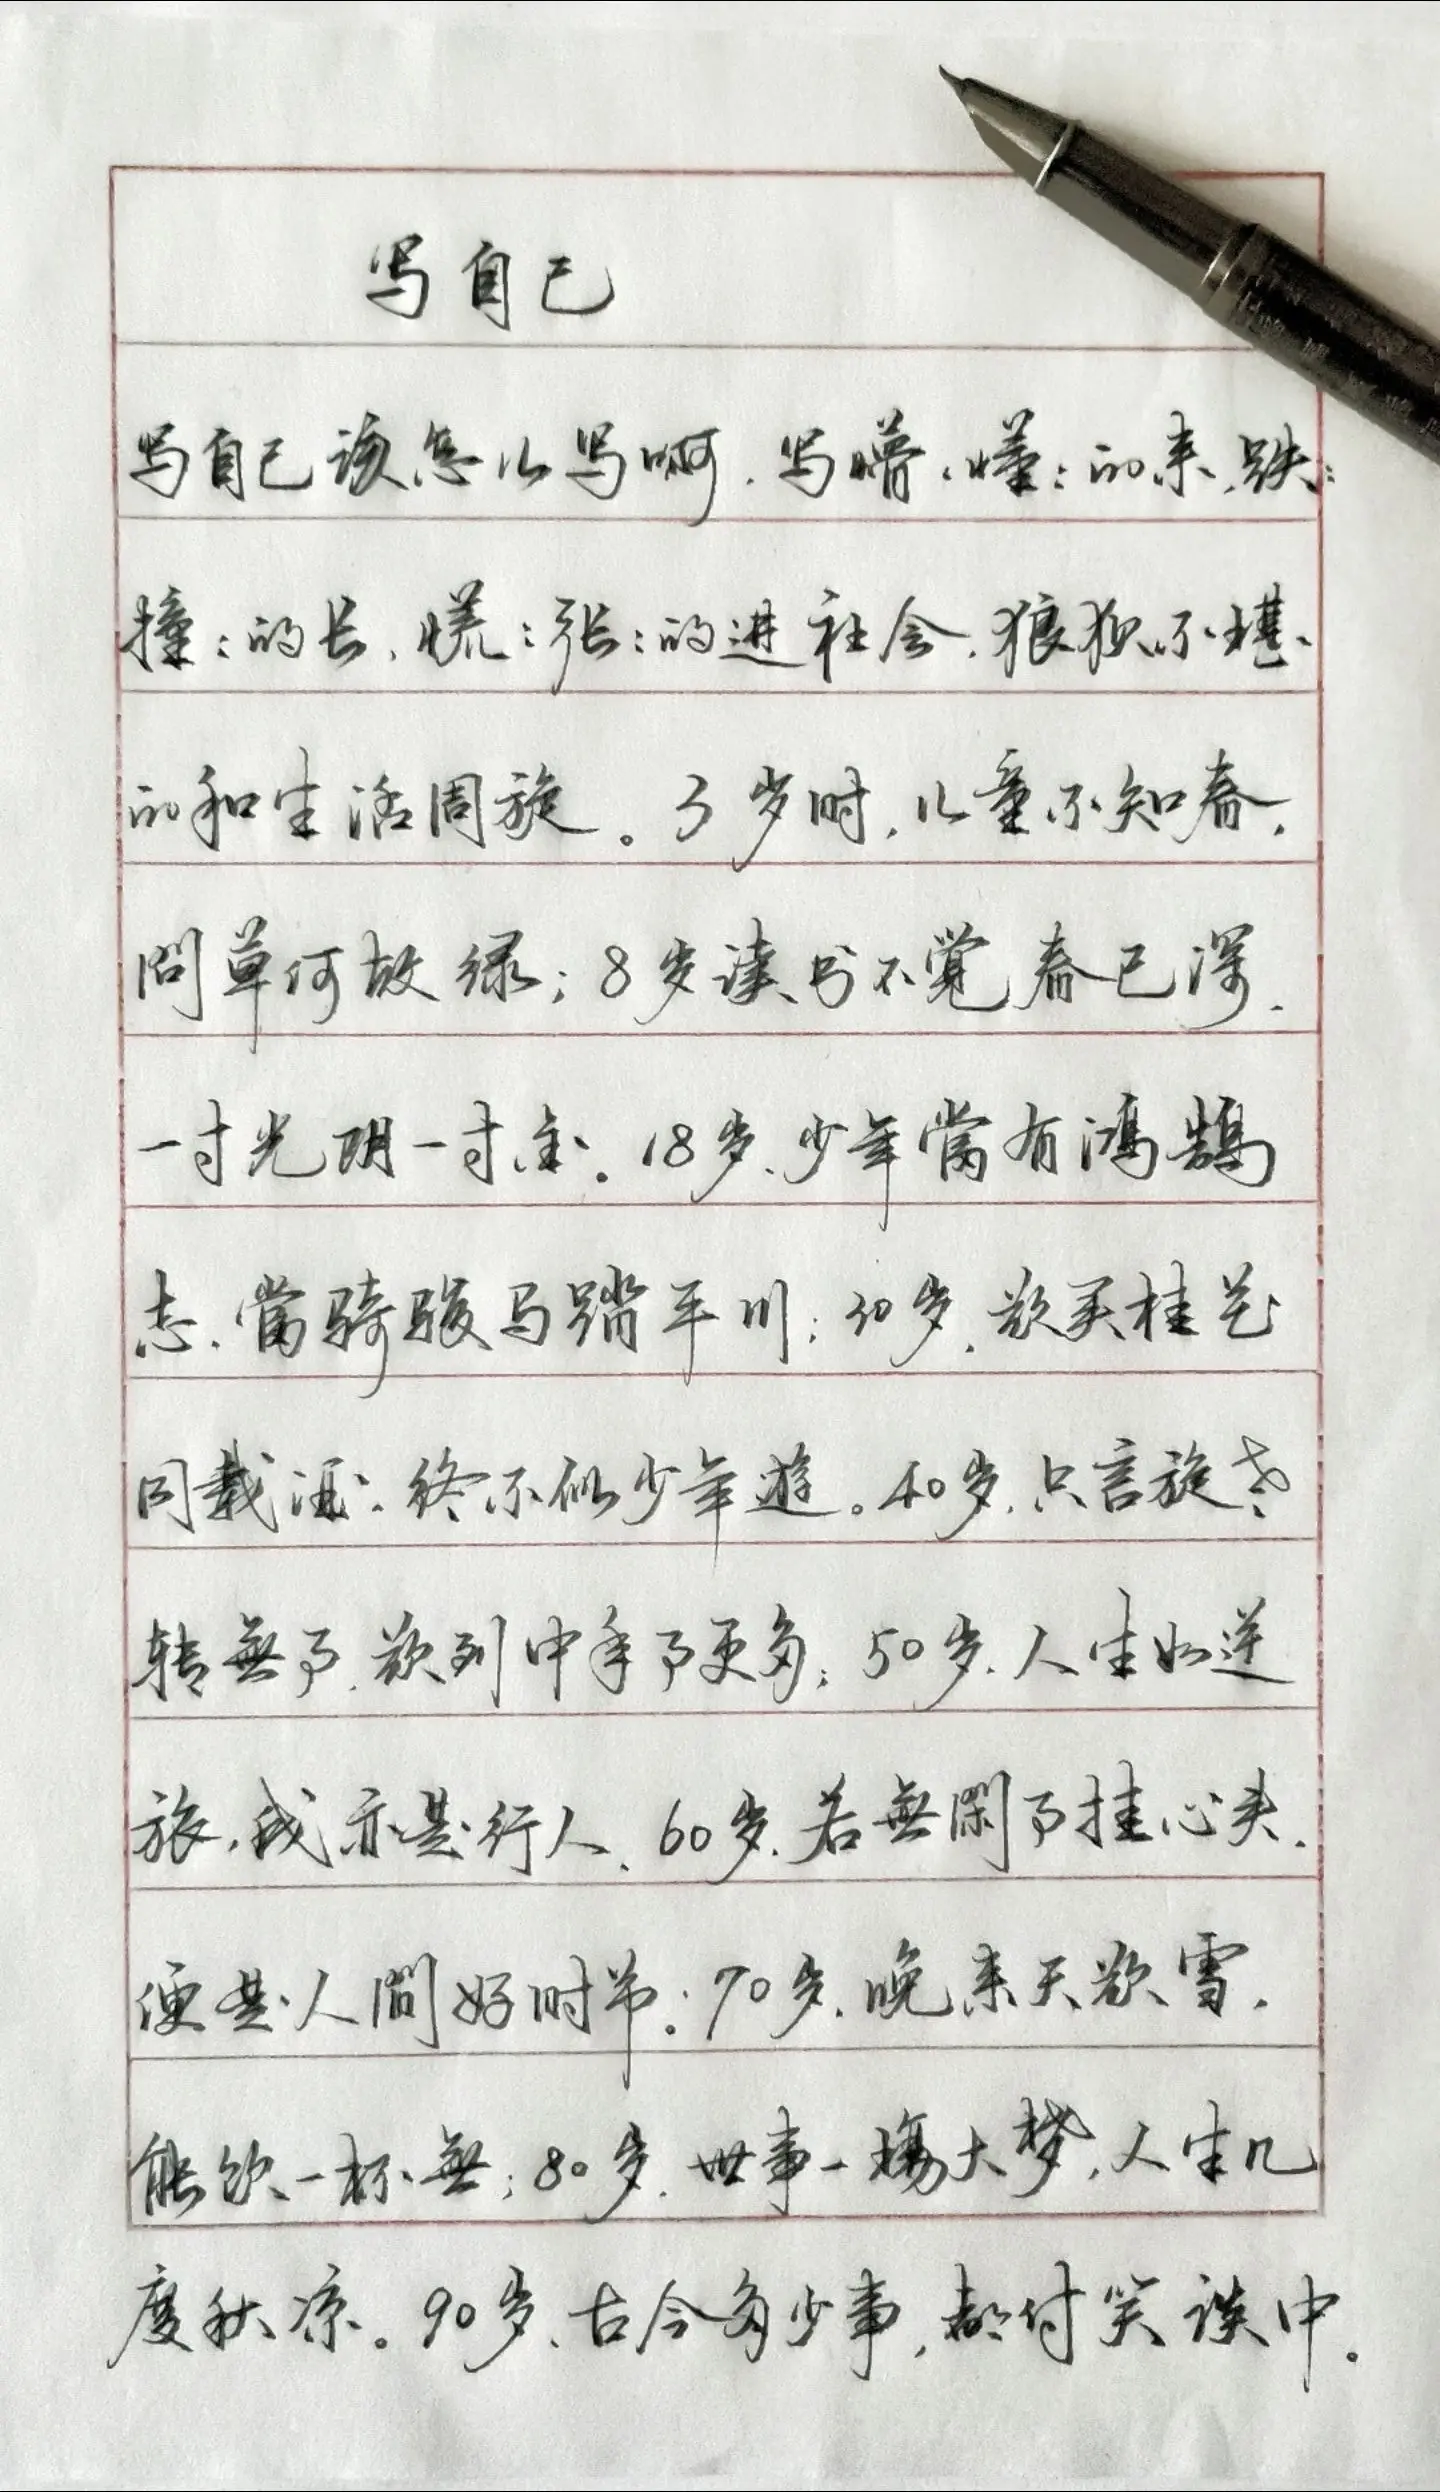 写自己
写自己该怎么写啊,写懵:懂:的来,跌:
撞:的长,慌:张:的进社会,狼狈不堪
的和生活周旋。3岁时,儿童不知春,
问草何故绿;8岁读书不觉春已深,
一寸光阴一寸金。18岁,少年當有鸿鹄
志,當骑骏马踏平川;30岁,欲买桂花
同载酒,终不似少年遊。40岁,只言旋老
转無事,欲到中年事更多;50岁,人生如逆
旅,我亦是行人,60岁,若無闲事挂心头,
便是人间好时节;70岁,晚来天欲雪,
能饮一杯無;80岁,世事一場大梦,人生几
度秋凉。90岁,古今多少事,都付笑谈中。